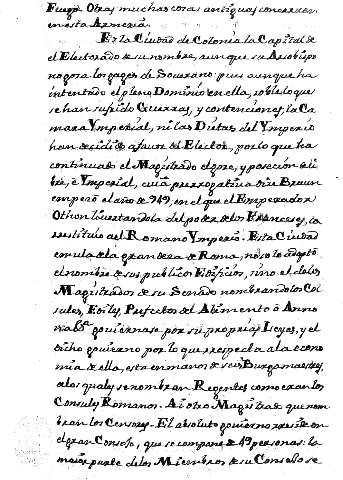 Fuego. Otras muchas cosas antiguas conserban
en esta Armeria.
Es la Ciudad de Colonia la Capital de
el Electorado de su nombre, aunque su Arzobispo
no goza los gages de Soverano pues aunque ha
intentado el pleno Dominio en ella, sobre lo que
se han sufrido Guerras, y contenciones; la Ca-
mara Ymperial, ni las Dietas del Ymperio
han decidido a favor del Elector, por lo que ha
continuado el Magistrado el goze, y posecion de li-
bre, è Ymperial, cuia prerrogativa
empezò el año de 949, en el que el Emperador
Othon libertandola del poder de los Franceses, la
restituiò al Romano Ymperio. Esta Ciudad
emula de la grandeza de Roma, no solo adoptò
el nombre de sus publicos Edificios, sino el de los
Magistrados de su Senado nombrandolos Con-
sules, Ediles, Prefectos del Alimento ò Anno-
na &ª goviernase por sus propias Leyes, y el
dicho govierno por lo que respecta a la econo-
mia de ella, esta en manos de seis Burgamaestres,
a los quales se nombran Regentes como eran los
Consules Romanos. Ai otro Magistrado que nom-
bran los Censores. El absoluto govierno reside en
el gran Consejo, que se compone de 49 personas: la
maior parte de los Miembros de su Consejo se